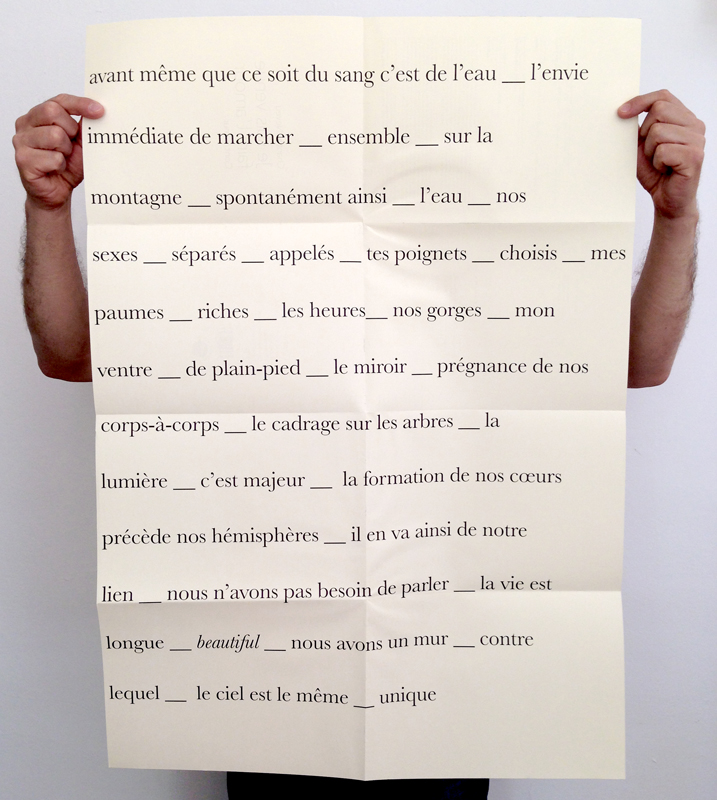 avant même que ce soit du sang c’est de l’eau __ l’envie
immédiate de marcher __ ensemble __ sur la
montagne __ spontanément ainsi __ l’eau __ nos
sexes __ séparés __ appelés __ tes poignets __ choisis __ mes
paumes __ riches __ les heures__ nos gorges __ mon
ventre __ de plain-pied __ le miroir __ prégnance de nos
corps-à-corps __ le cadrage sur les arbres __ la
lumière __ c’est majeur __ la formation de nos cœurs
précède nos hémisphères __ il en va ainsi de notre
lien __ nous n’avons pas besoin de parler __ la vie est
longue __ beautiful __ nous avons un mur __ contre
lequel __ le ciel est le même __ unique